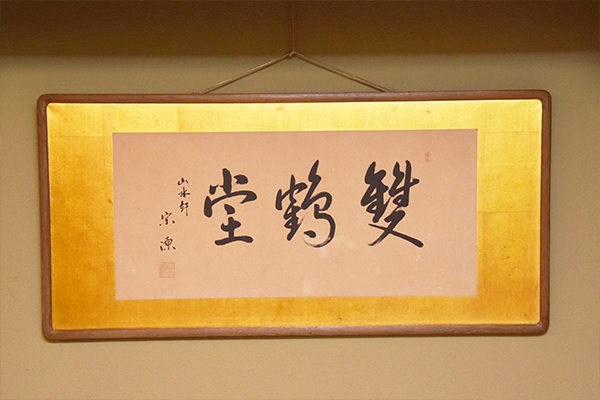 雙鶴堂
山水軒
宗源